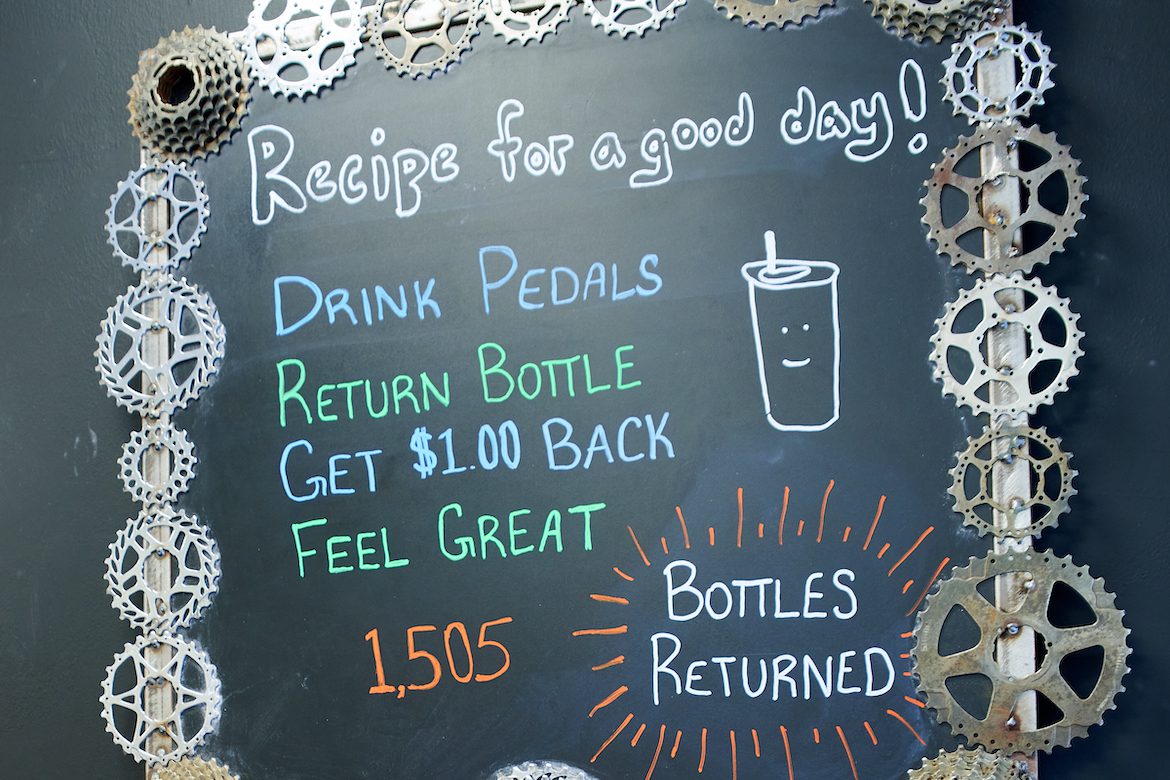 Recipe for a good day!
DRINK PEDALS
RETURN BOTTLE
GET $1.00 BACK
FEEL GREAT
1,505
BOTTLES
RETURNED